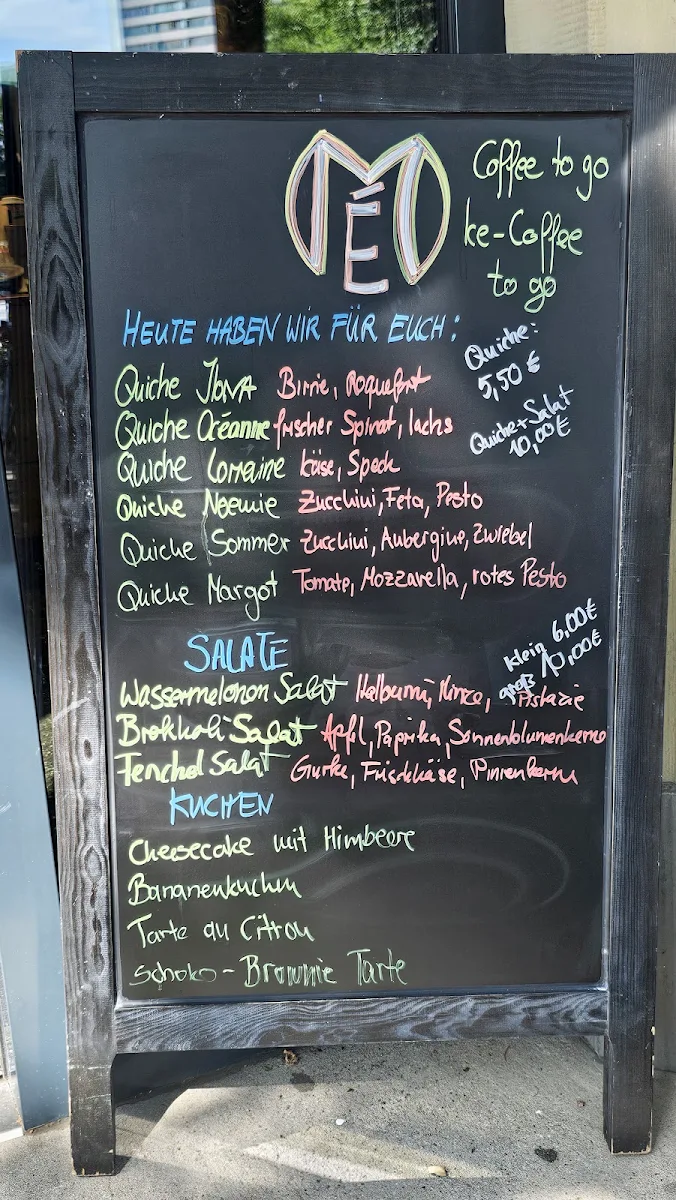 MÉ
Coffee to go
ke-Coffee
to go
HEUTE HABEN WIR FÜR EUCH:
Quiche:
5,50 €
Quiche Birne, Roquefort
Quiche Océanne frischer Spinat, lachs
Quiche+Salat
10,00€
Quiche Lorraine käse, Speck
Quiche Noemie Zucchini, Feta, Pesto
Quiche Sommer Zucchini, Aubergine, Zwiebel
Quiche Margot Tomate, Mozzarella, rotes Pesto
SALATE
klein 6,00€
groß 10,00€
Wassermelonen Salat Halloumi, Minze, Pistazie
Brokkoli Salat Apfl, Paprika, Sonnenblumenkerne
Fenchel Salat Gurke, Frischkäse, Pinienkerne
KUCHEN
Cheesecake mit Himbeere
Bananenkuchen
Tarte au Citron
Schoko-Brownie Tarte